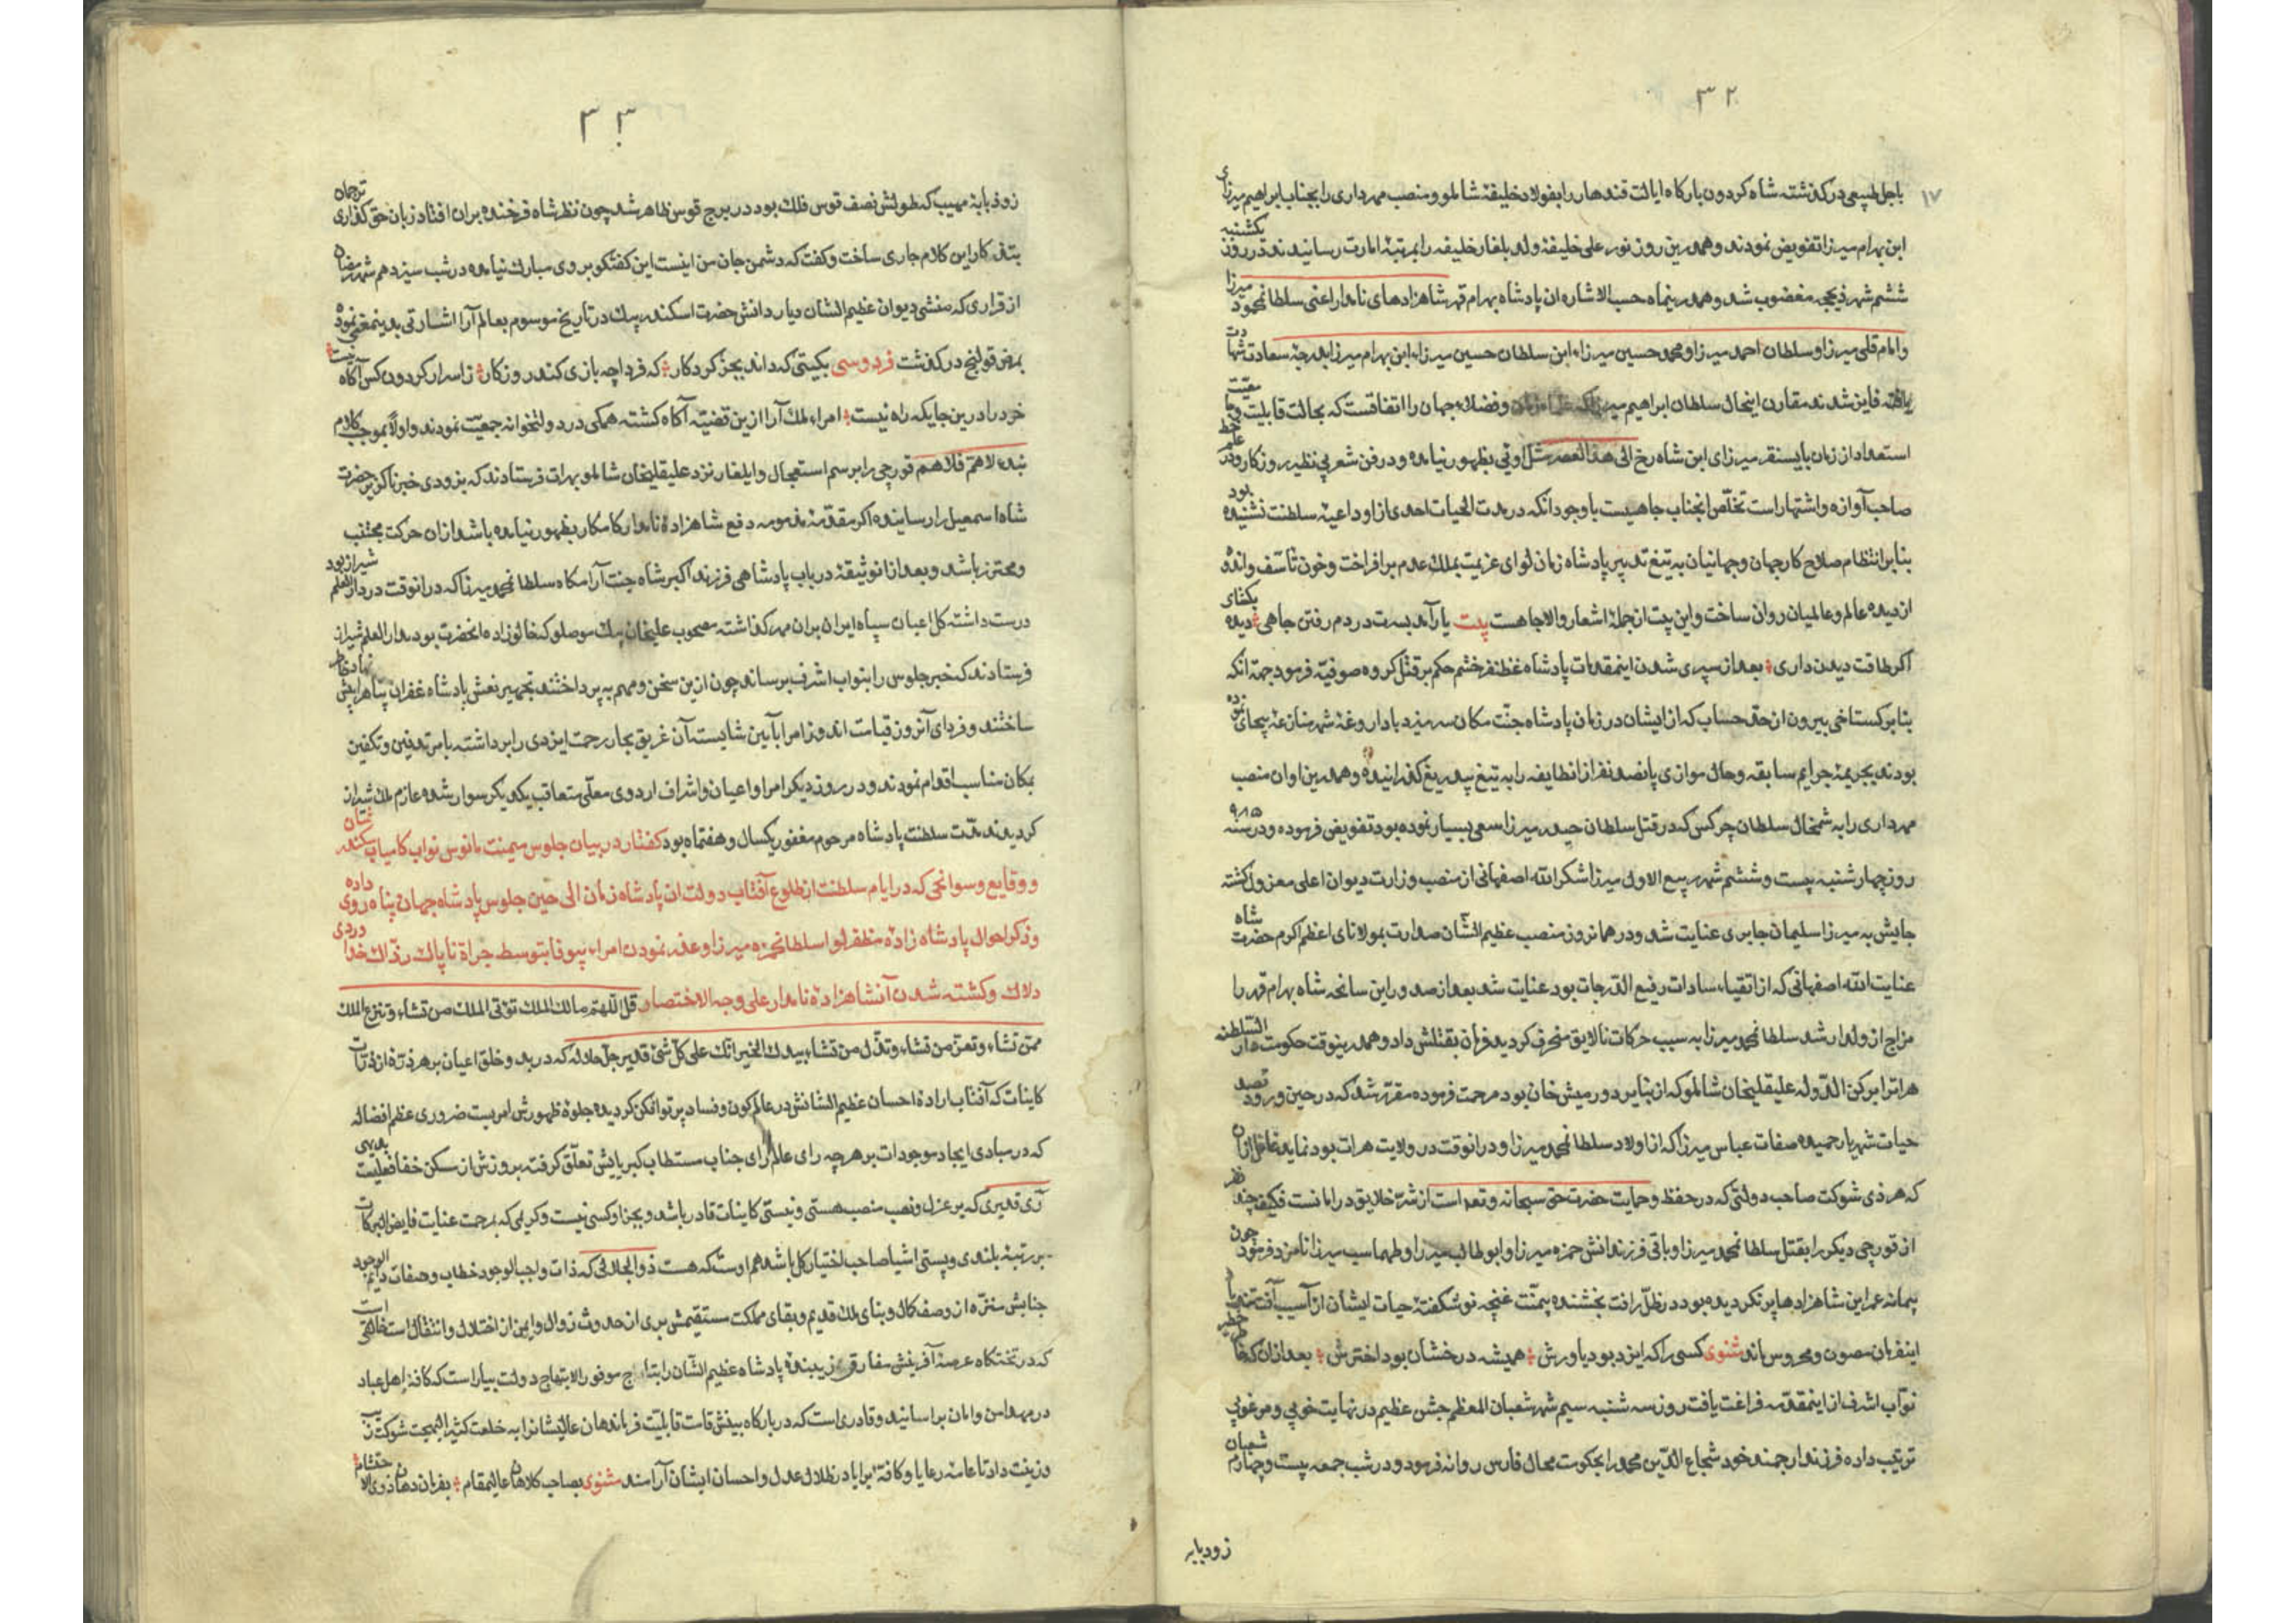 ۳۲
۱۷
باجل طبیعی درکذشته شاه کردون بارکاه ایالت قندهار را بفولاد خلیفهٔ شاملو و منصب مهرداری را بجناب ابراهیم میرزای
ابن بهرام میرزا تفویض نمودند و همدرین روز نور علی خلیفهٔ ولد بلغار خلیفه را بمرتبهٔ امارت رسانیدند در روز یکشنبه
ششم شهر ذیحجه مغضوب شد و همدرینماه حسب الاشاره ان پادشاه بهرام قهر شاهزادهای نامدار اعنی سلطانمحمود میرزا
و امام قلی میرزا و سلطان احمد میرزا و محمد حسین میرزاء ابن سلطان حسین میرزاء ابن بهرام میرزا بدرجهٔ سعادت شهادت
یافته فایز شدند مقارن اینحال سلطان ابراهیم میرزا که و فضلاء جهان را اتفاقست که بحالت قابلیت و
استعداد از زمان بایسنقر میرزای ابن شاه رخ الی هذا العصر مثل اوئی بظهور نیامده و در فن شعر بی نظیر روزکار و در علم خط
صاحب آوازه و اشتهار است تخلّص انجناب جاهیست باوجود انکه در مدت الحیات احدی از او داعیهٔ سلطنت نشنیده بود
بنابر انتظام صلاح کار جهان و جهانیان به تیغ تدبیر پادشاه زمان لوای عزیمت بملک عدم برافراخت و خون تاسف و اندوه
از دیده عالم و عالمیان روان ساخت و این بیت از جملهٔ اشعار والا جاهست بیت یار آمد بسرت در دم رفتن جاهی دیده بکشای
اکر طاقت دیدن داری بعد از سپری شدن اینمقدمات پادشاه غظنفر خشم حکم بر قتل کروه صوفیّه فرمود جهة انکه
بنابر کستاخی بیرون از حد حساب که از ایشان در زمان پادشاه جنّت مکان سر میزد با داروغهٔ شهر منازعهٔ بیجای نموده
بودند بجریمهٔ جرایم سابقه و حال موازی پانصد نفر از انطایفه را به تیغ بیدریغ کذرانیده و همدرین اوان منصب
مهرداری را به شمخال سلطان چرکس که در قتل سلطان حیدر میرزا سعی بسیار نموده بود تفویض فرموده و در سنه ۹۸۵
روز چهارشنبه بیست و ششم شهر ربیع الاول میرزا شکرالله اصفهانی از منصب وزارت دیوان اعلی معزول کشته
جایش به میرزا سلیمان جابری عنایت شد و در همانروز منصب عظیم الشّان صدارت بمولانای اعظم اکرم حضرت شاه
عنایت الله اصفهانی که از اتقیاء سادات رفیع الدّرجات بود عنایت شد بعد از صدور این سانحه شاه بهرام قهر را
مزاج از ولد ارشد سلطانمحمد میرزا به سبب حرکات نالایق منحرف کردید فرمان بقتلش داد و همدرینوقت حکومت دار السّلطنه
هرات را برکن الدّوله علیقلیخان شاملو که از نبایر دورمیش خان بود مرحمت فرموده مقرّر شد که در حین ورود قصد
حیات شهریار حمیده صفات عباس میرزا که از اولاد سلطانمحمد میرزا و در انوقت در ولایت هرات بود نماید غافل از ان
که هر ذی شوکت صاحب دولتی که در حفظ و حمایت حضرت حق سبحانه و تعم است از شرّ خلایق در امانست
از قورچی دیکر را بقتل سلطانمحمد میرزا و باقی فرزندانش حمزه میرزا و ابوطالب میرزا و طهماسب میرزا نامزد فرمود چون
پیمانه عمر این شاهزادها پر نکردیده بود در ظلّ رافت بخشنده بیمنّت غنچه نوشکفتهٔ حیات ایشان از آسیب آفت
اینفرمان مصون و محروس ماند مثنوی کسی را که ایزد بود یاورش همیشه درخشان بود اخترش بعد از ان که
نوّاب اشرف از اینمقدمه فراغت یافت روز سه شنبه سیم شهر شعبان المعظم جشن عظیم در نهایت خوبی و مرغوبی
ترتیب داده فرزند ارجمند خود شجاع الدّین محمد را بحکومت محال فارس روانه فرمود و در شب جمعه بیست و چهارم شعبان
زوذبابه
۳۳
زوذبابهٔ مهیب که طولش نصف قوس فلک بود در برج قوس ظاهر شد چون نظر شاه فرخنده بران افتاد زبان حق کذاری ترجمان
بتذکار این کلام جاری ساخت و کفت که دشمن جان من اینست این کفتکو بروی مبارک نیامده در شب سیزدهم شهر رمضان
از قراری که منشی دیوان عظیم الشان دیار دانش حضرت اسکندر بیک در تاریخ موسوم بعالم آرا اشارتی بدینمعنی نموده
بمرض قولنج درکذشت فردوسی بکیتی که داند بجز کردکار که فردا چه بازی کند روزکار ز اسرار کردون کس آکاه نیست
خرد را درین جایکه راه نیست امراء ملک آرا از ین قضیّه آکاه کشته همکی در دولتخوانه جمعیّت نمودند و اولاً بموجب کلام
الاهم فلاهم قورچی را برسم استعجال و ایلغار نزد علیقلیخان شاملو بهرات فرستادند که بزودی خبر ناکزیر حضرت
شاه اسمعیل را رسانیده اکر مقدّمهٔ مذمومه دفع شاهزادهٔ نامدار کامکار بظهور نیامده باشد از ان حرکت مجتنب
و محترز باشد و بعد از ان وثیقهٔ در باب پادشاهی فرزند اکبر شاه جنت آرامکاه سلطانمحمد میرزا که در انوقت در دار العلم شیراز بود
درست داشته کل اعیان سپاه ایران بران مهر کذاشته مصحوب علیخان بیک موصلو که خالو زاده انحضرت بود بدار العلم شیراز
فرستادند که خبر جلوس را بنواب اشرف برساند چون از ین سخن و مهم بپرداختند تجهیز نعش پادشاه غفران پناه را
ساختند و فردای آنروز قیامت اندوز امرا بآیین شایسته آن غریق بحار رحمت ایزدی را برداشته بامر تدفین و تکفین
بمکان مناسب اقدام نمودند و در روز دیکر امرا و اعیان و اشراف اردوی معلّی متعاقب یکدیکر سوار شده عازم ملک شیراز
کردیدند مدّت سلطنت پادشاه مرحوم مغفور یکسال و هفتماه بود کفتار در بیان جلوس میمنت مانوس نواب کامیاب سکندر شان
و وقایع و سوانحی که در ایام سلطنت از طلوع آفتاب دولت ان پادشاه زمان الی حین جلوس پادشاه جهان پناه روی داده
و ذکر احوال پادشاه زادهٔ مظفر لوا سلطانحمزه میرزا و غدر نمودن امراء بیوفا بتوسط جراة ناپاک خدا وردی
دلاک و کشته شدن آنشاهزادهٔ نامدار علی وجه الاختصار قل اللّهمّ مالک الملک تؤتی الملک من تشاء و تنزع الملک
ممّن تشاء و تعزّ من تشاء و تذلّ من تشاء بیدک الخیر انّک علی کلّ شئ قدیر جلّ جلاله که در بدو خلق اعیان بر هر ذرّه از ذرّات
کاینات که آفتاب ارادهٔ احسان عظیم الشانش در عالم کون و فساد پرتو افکن کردیده جلوهٔ ظهورش امریست ضروری عظم افضاله
که در مبادی ایجاد موجودات بر هرچه رای عالم آرای جناب مستطاب کبریایش تعلّق کرفته بروزش از مسکن خفا فعلیّت بدیهی
قدیری که بر عزل و نصب منصب هستی و نیستی کاینات قادر باشد و بجز او کسی نیست و کریمی که بمرحمت عنایت فایض البرکات
بر رتبهٔ بلندی و پستی اشیا صاحب اختیار کل باشد هم اوست که هست ذو الجلالی که ذات واجب الوجود خطاب و صفات دایم الوجود
جنابش منزّه از وصف کمال و بنای ملک قدیم و بقای مملکت مستقیمش بری از حدوث زوال و ایمن از اختلال و انتقال است خالقی
که در تختکاه عرصه آفرینش مفارق زیبنده پادشاه عظیم الشّان را بتاج موفور الابتهاج دولت بیاراست که کافهٔ اهل عباد
در مهد امن و امان براساید و قادری است که در بارکاه بینش قامت قابلیّت فرماندهان عالیشانرا به خلعت کثیر البهجت شوکت زیب
و زینت داد تا عامهٔ رعایا و کافهٔ برایا در ظلال عدل و احسان ایشان آرامند مثنوی بصاحب کلاهان عالیمقام بفرماندهان ذوی الاحتشام